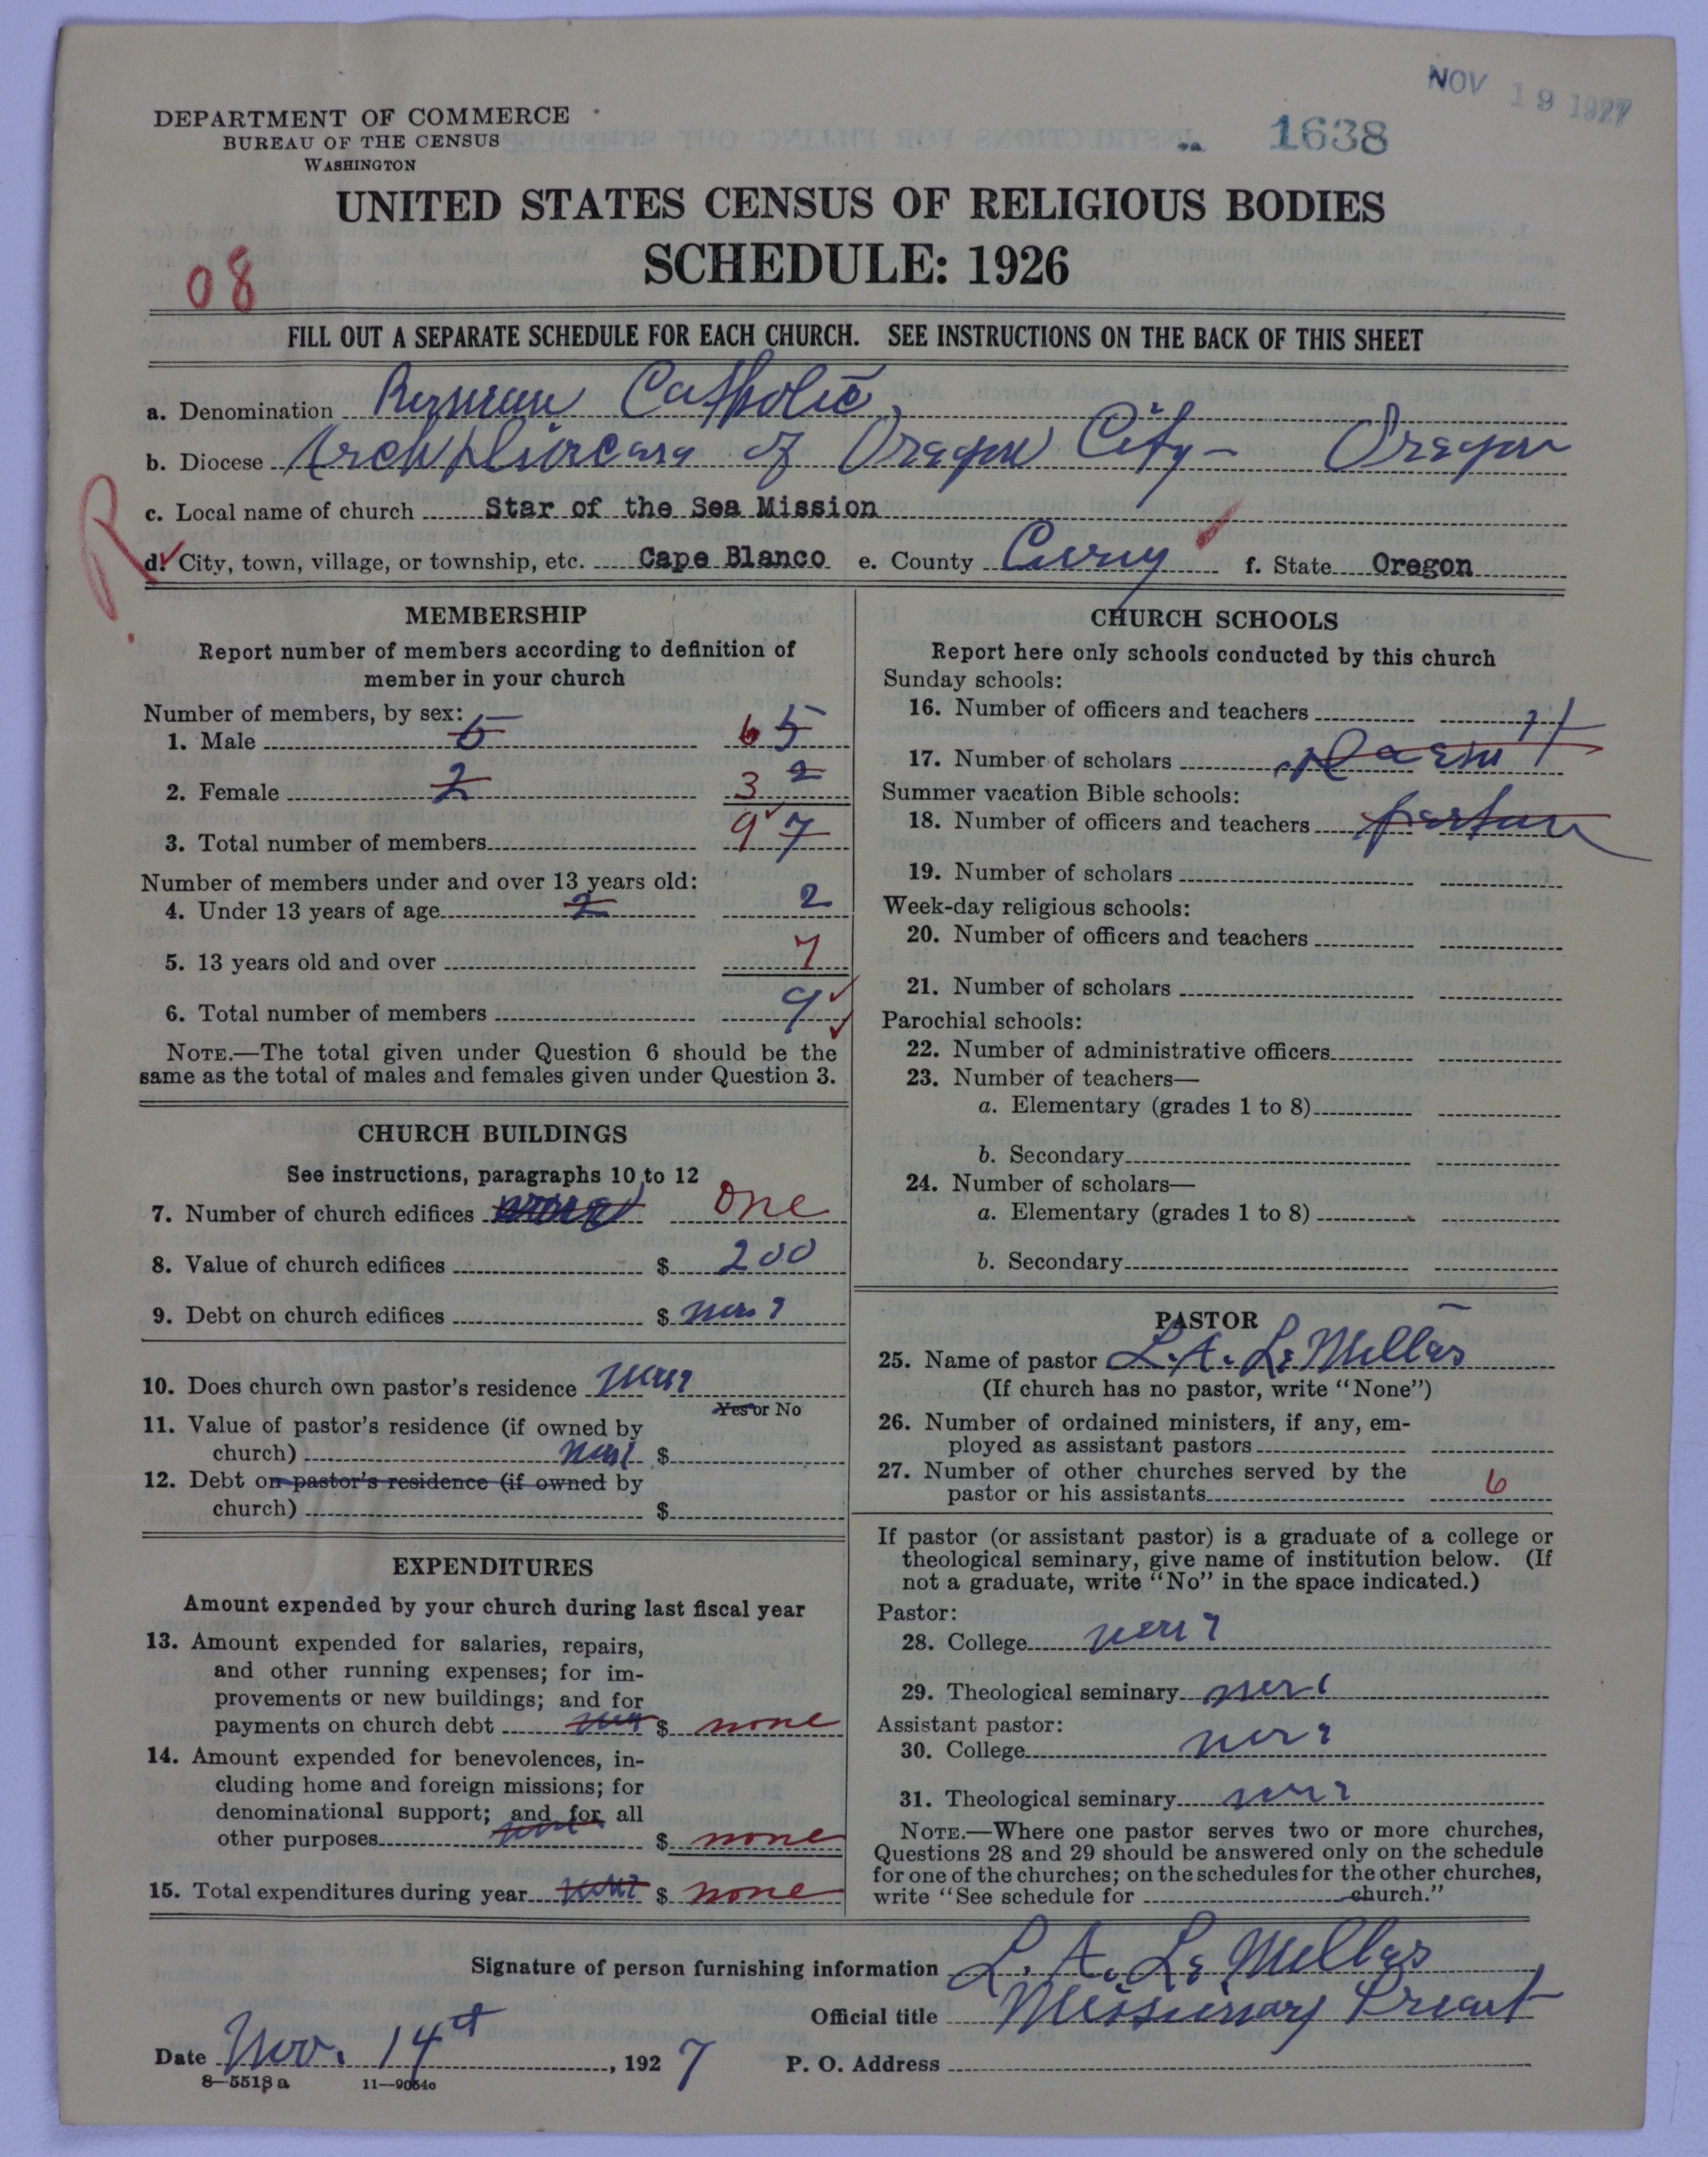 NOV 19 1927
1638
DEPARTMENT OF COMMERCE
BUREAU OF THE CENSUS
WASHINGTON
UNITED STATES CENSUS OF RELIGIOUS BODIES
SCHEDULE: 1926
08
FILL OUT A SEPARATE SCHEDULE FOR EACH CHURCH. SEE INSTRUCTIONS ON THE BACK OF THIS SHEET
a. Denomination Roman Catholic
b. Diocese of Oregon City - Oregon
R
c. Local name of church Star of the Sea Mission
d. City, town, village, or township, etc. Cape Blanco e. County Curry f. State Oregon
MEMBERSHIP
Report number of members according to definition of
member in your church
Number of members, by sex:
1. Male 5 6 5
2. Female 2 3 2
3. Total number of members 9 7
Number of members under and over 13 years old:
4. Under 13 years of age 2 2
5. 13 years old and over 7
6. Total number of members 9
NOTE.—The total given under Question 6 should be the
same as the total of males and females given under Question 3.
CHURCH BUILDINGS
See instructions, paragraphs 10 to 12
7. Number of church edifices one
8. Value of church edifices $ 200
9. Debt on church edifices $ none
10. Does church own pastor's residence none
Yes or No
11. Value of pastor's residence (if owned by
church) none $
12. Debt on pastor's residence (if owned by
church) $
EXPENDITURES
Amount expended by your church during last fiscal year
13. Amount expended for salaries, repairs,
and other running expenses; for im-
provements or new buildings; and for
payments on church debt $ none
14. Amount expended for benevolences, in-
cluding home and foreign missions; for
denominational support; and for all
other purposes $ none
15. Total expenditures during year none $ none
CHURCH SCHOOLS
Report here only schools conducted by this church
Sunday schools:
16. Number of officers and teachers
17. Number of scholars
Summer vacation Bible schools:
18. Number of officers and teachers
19. Number of scholars
Week-day religious schools:
20. Number of officers and teachers
21. Number of scholars
Parochial schools:
22. Number of administrative officers
23. Number of teachers—
a. Elementary (grades 1 to 8)
b. Secondary
24. Number of scholars—
a. Elementary (grades 1 to 8)
b. Secondary
PASTOR
25. Name of pastor L. A. Le Miller
(If church has no pastor, write "None")
26. Number of ordained ministers, if any, em-
ployed as assistant pastors
27. Number of other churches served by the
pastor or his assistants 6
If pastor (or assistant pastor) is a graduate of a college or
theological seminary, give name of institution below. (If
not a graduate, write "No" in the space indicated.)
Pastor:
28. College none
29. Theological seminary none
Assistant pastor:
30. College none
31. Theological seminary none
NOTE.—Where one pastor serves two or more churches,
Questions 28 and 29 should be answered only on the schedule
for one of the churches; on the schedules for the other churches,
write "See schedule for church."
Signature of person furnishing information L. A. Le Miller
Official title Missionary Priest
Date Nov. 14th, 1927 P. O. Address
8—5518 a 11—9054c